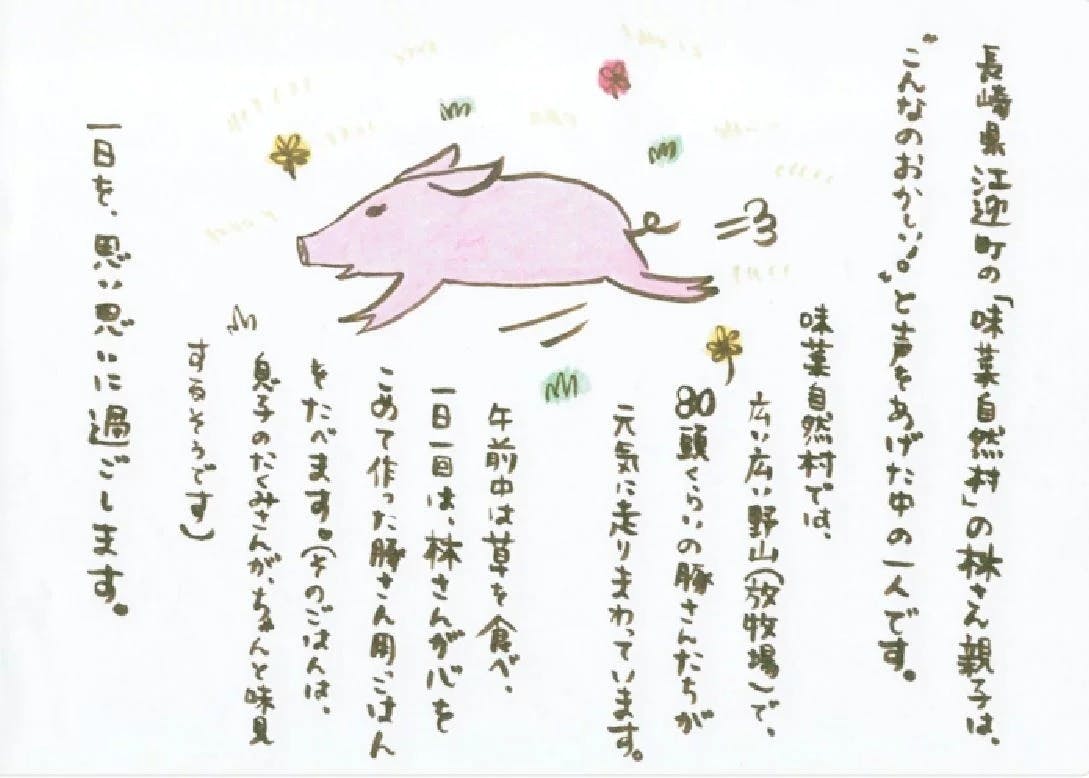 長崎県江迎町の「味菜自然村」の林さん親子は、
"こんなのおかしい。"と声をあげた中の一人です。
味菜自然村では、
広い広い野山(放牧場)で、
80頭くらいの豚さんたちが
元気に走りまわっています。
午前中は草を食べ、
一日一回は、林さんが心を
こめて作った豚さん用ごはん
をたべます。(そのごはんは、
息子のたくみさんが、ちゃんと味見
するそうです)
一日を、思い思いに過ごします。